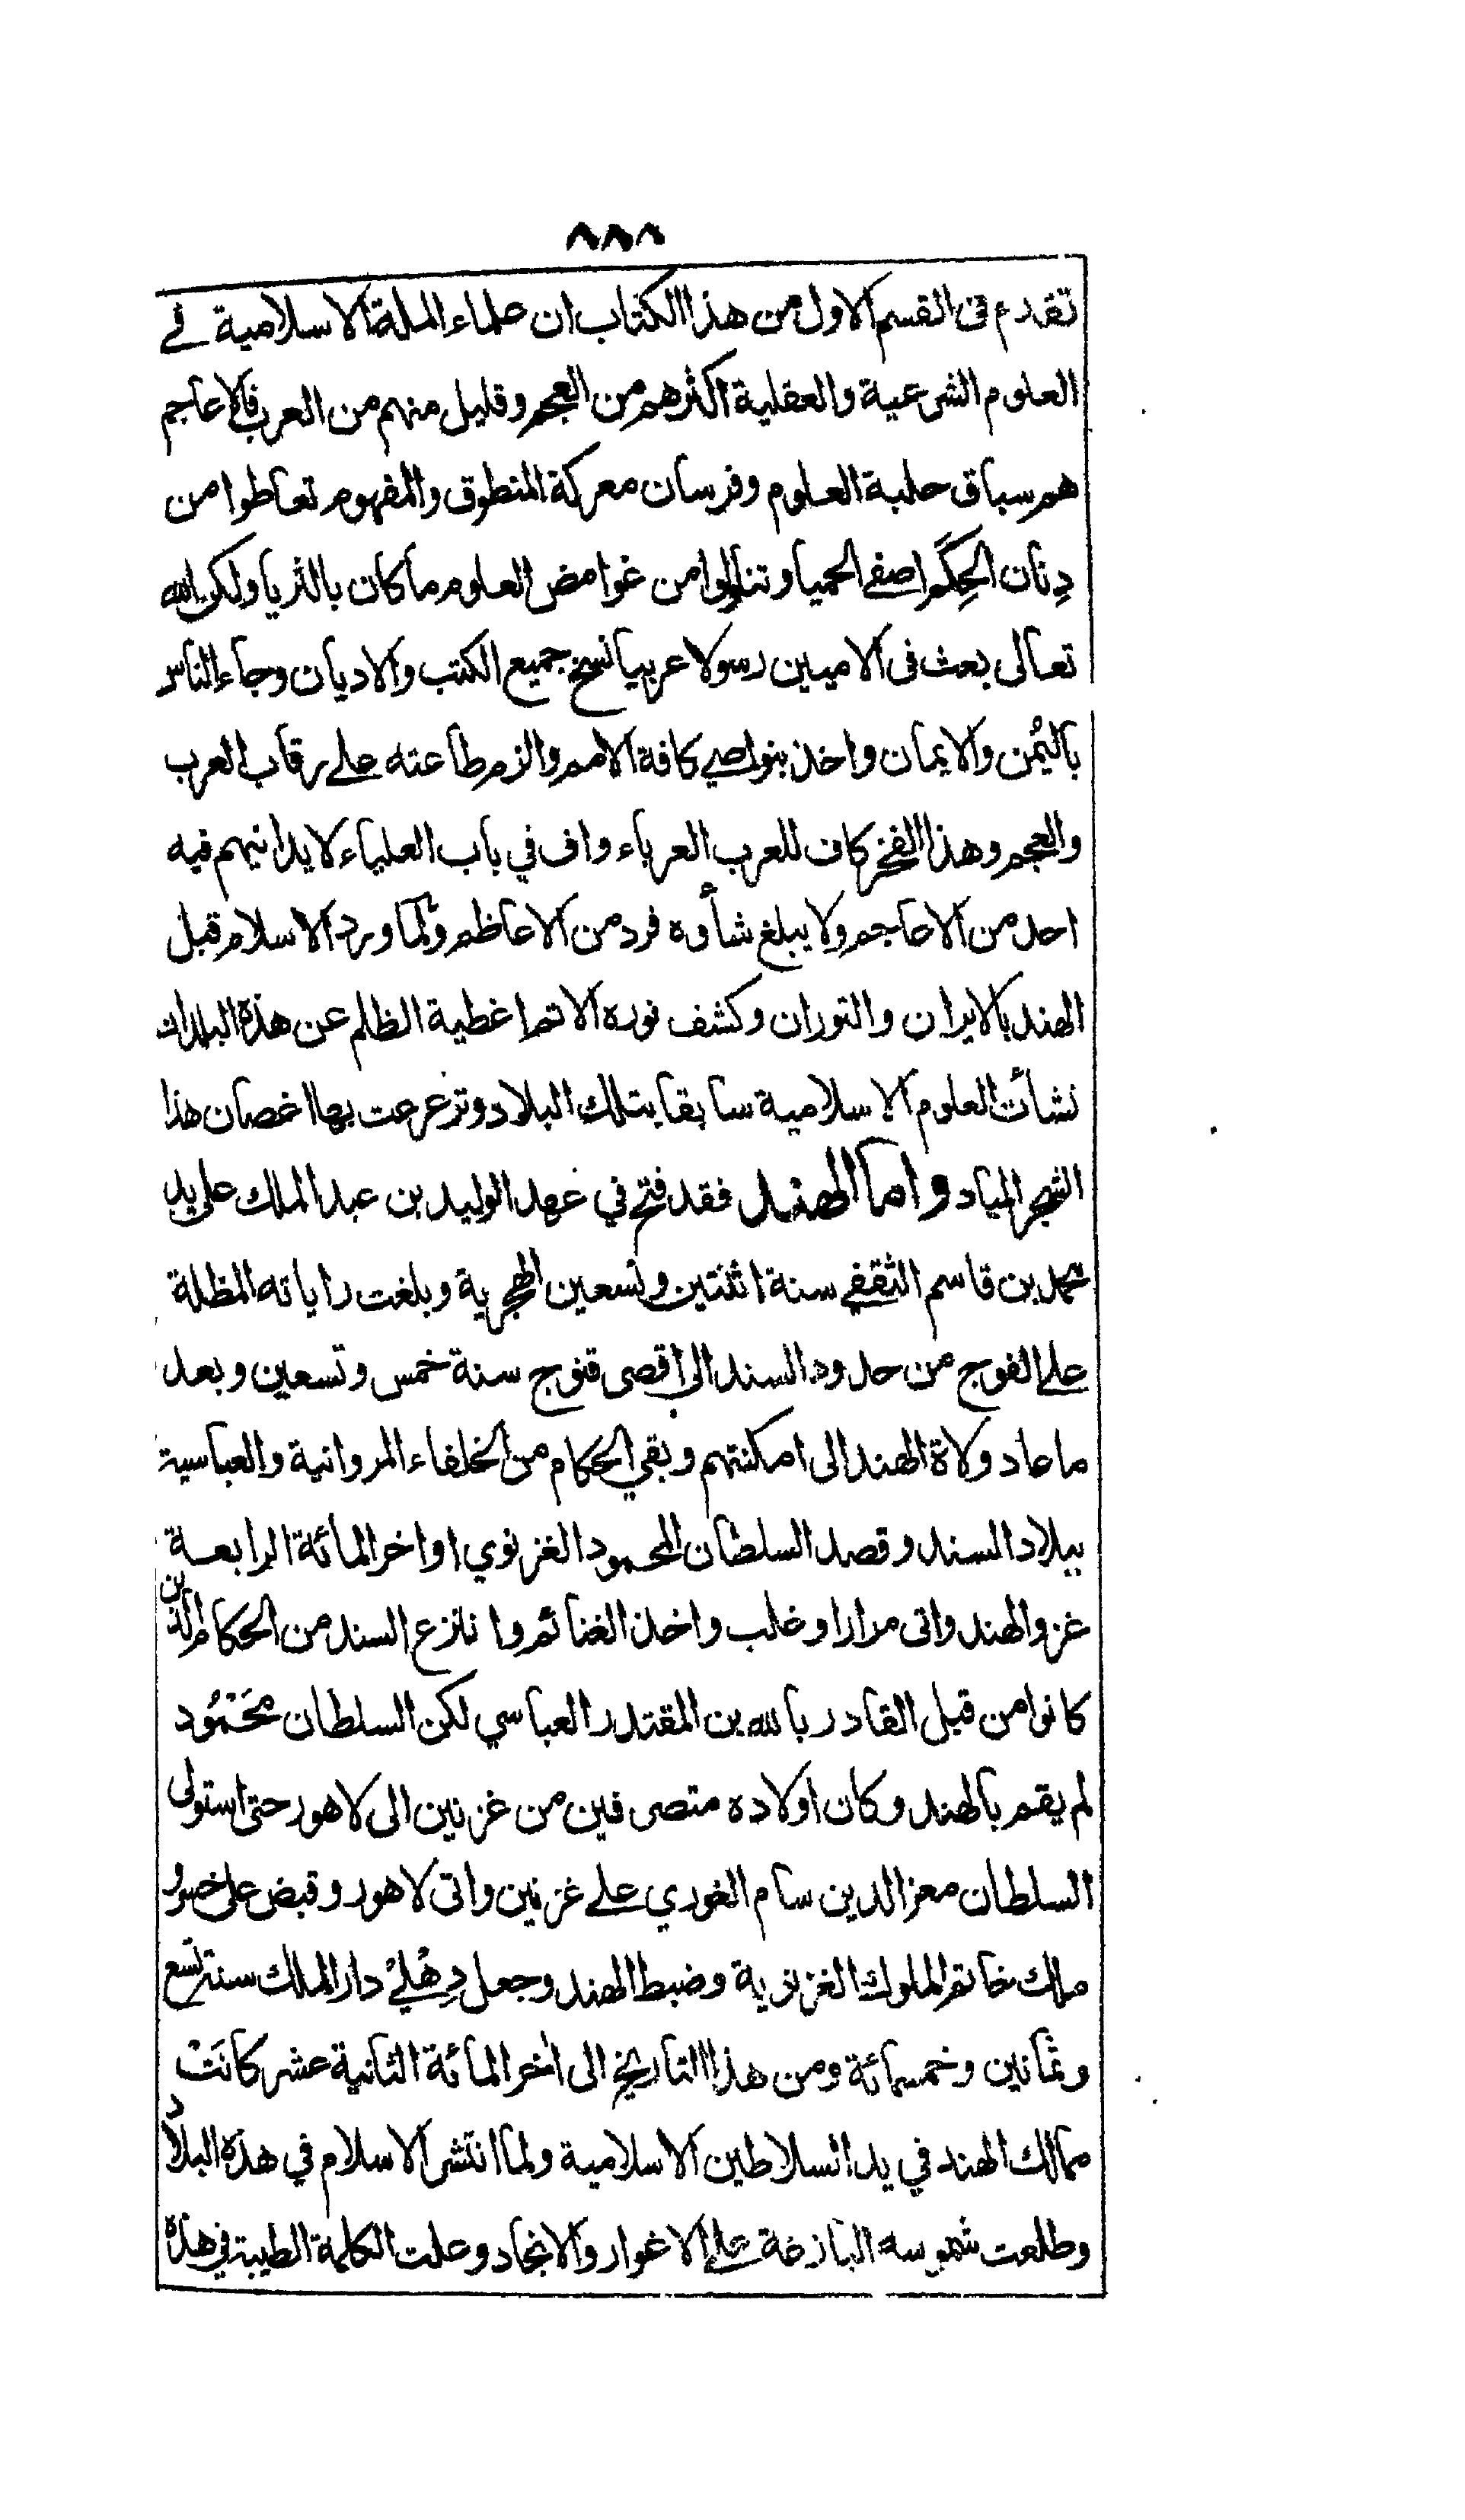 ٨٨٨
تقدم في القسم الاول من هذا الكتاب ان علماء الملة الاسلامية في
العلوم الشرعية والعقلية اكثرهم من العجم وقليل منهم من العرب فالاعاجم
هم سباق حلبة العلوم وفرسان معركة المنطوق والمفهوم تعاطوا من
دِنان الحِكَم اصفى الحميا وتناولوا من غوامض العلوم ما كان بالثريا ولكن الله
تعالى بعث في الاميين رسولا عربيا نسخ جميع الكتب والاديان وجاء الناس
باليُمن والايمان واخذ بنواصي كافة الامم والزم طاعته على رقاب العرب
والعجم وهذا الفخر كاف للعرب العرباء واف في باب العلياء لا يدانيهم فيه
احد من الاعاجم ولا يبلغ شأوه فرد من الاعاظم ولما ورد الاسلام قبل
الهند بالايران والتوران وكشف نوره الاتم اغطية الظلم عن هذه البلدان
نشأت العلوم الاسلامية سابقا بتلك البلاد وترعرعت بها اغصان هذا
الشجر المياد واما الهند فقد فتح في عهد الوليد بن عبد الملك على يد
محمد بن قاسم الثقفي سنة اثنتين وتسعين الهجرية وبلغت راياته المظلة
على الفوج من حدود السند الى اقصى قنوج سنة خمس وتسعين وبعد
ما عاد ولاة الهند الى امكنتهم وبقي الحكام من الخلفاء المروانية والعباسية
ببلاد السند وقصد السلطان المحمود الغزنوي اواخر المائة الرابعة
غزو الهند واتى مرارا وغلب واخذ الغنائم وانتزع السند من الحكام الذين
كانوا من قبل القادر بالله بن المقتدر العباسي لكن السلطان مَحْمُود
لم يقم بالهند وكان اولاده متصرفين من غزنين الى لاهور حتى استولى
السلطان معز الدين سام الغوري على غزنين واتى لاهور وقبض على خسرو
ملك خاتم الملوك الغزنوية وضبط الهند وجعل دِهْلِيْ دار الملك سنة تسع
وثمانين وخمسمائة ومن هذا التاريخ الى اخر المائة الثانية عشر كانَتْ
ممالك الهند في يد السلاطين الاسلامية ولما انتشر الاسلام في هذه البلاد
وطلعت شموسه البازغة على الاغوار والانجاد وعلت الكلمة الطيبة في هذه